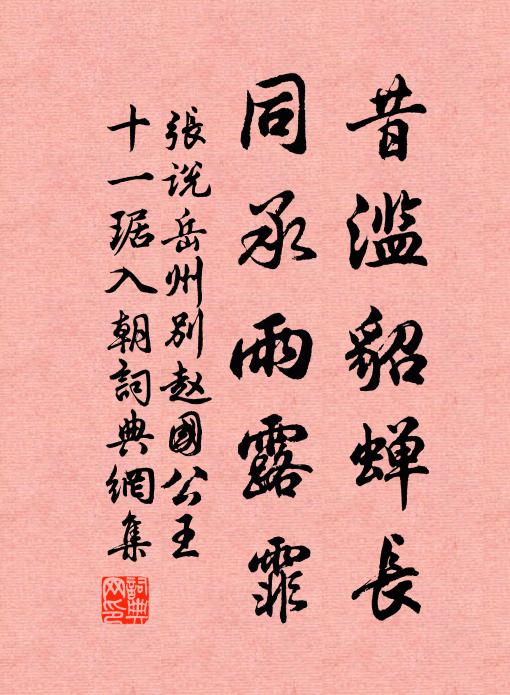 昔滥貂蝉长
同承雨露霏
張说岳州别赵國公王
十一琚入朝詞典網集
詞典网印